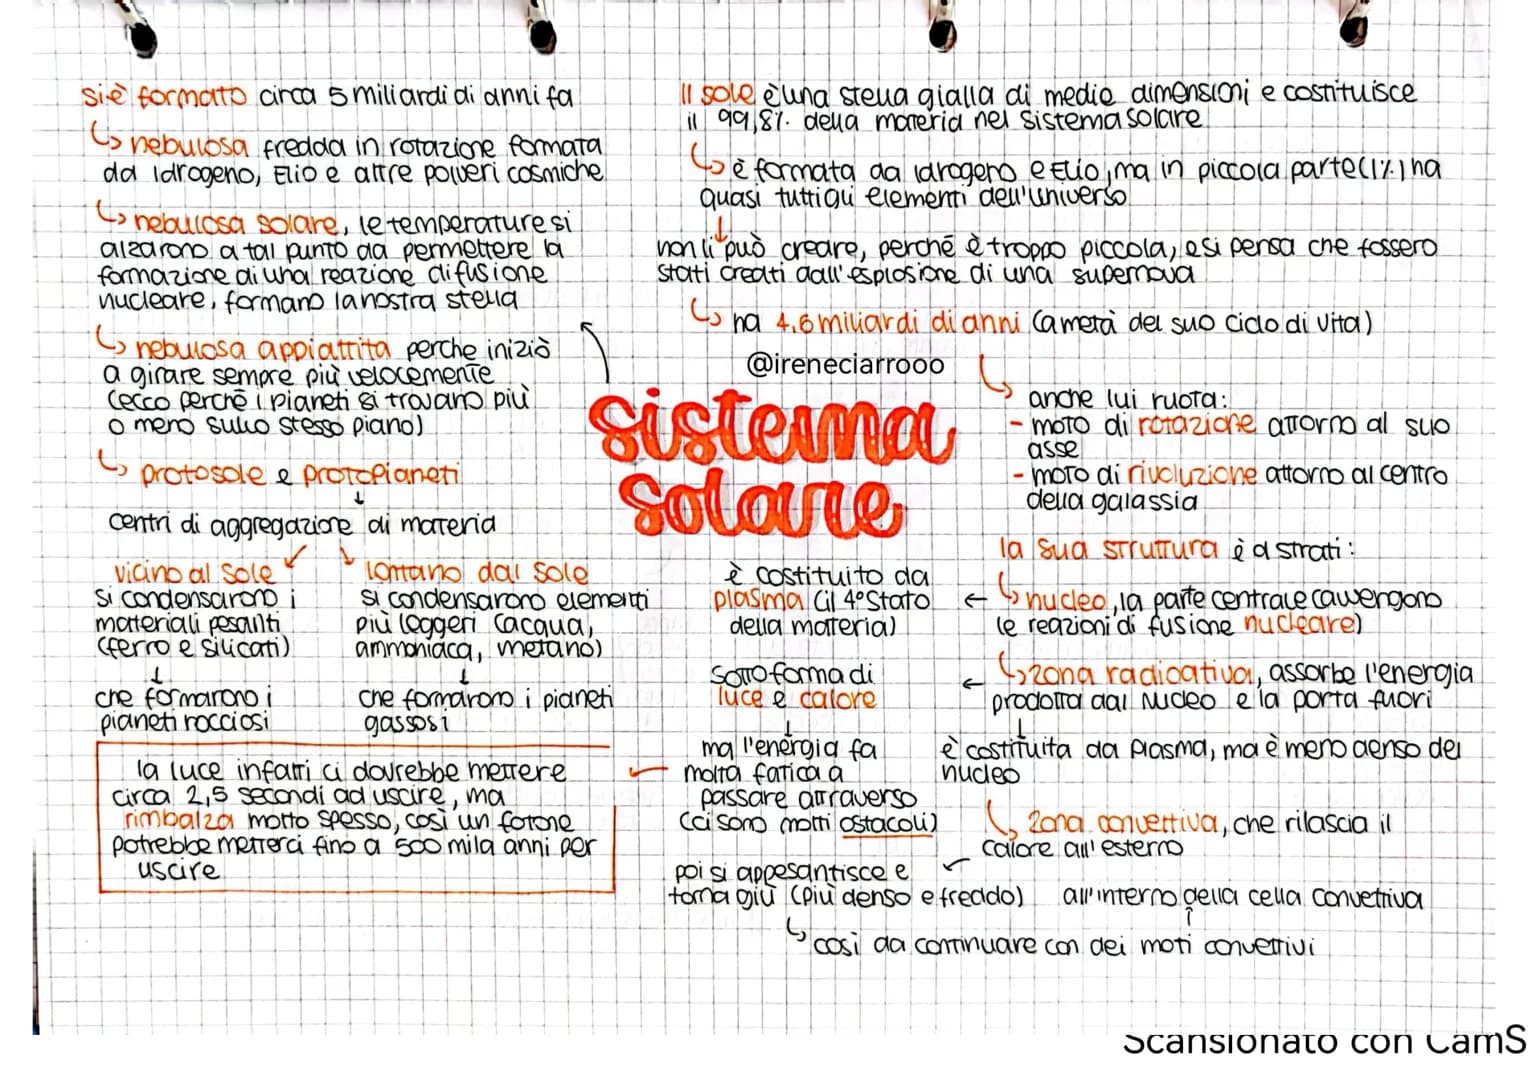 si è formato circa 5 miliardi di anni fa
↳ nebulosa fredda in rotazione formata
da idrogeno, Elio e altre polveri cosmiche
↳ nebulosa solare, le temperature si
alzarono a tal punto da permettere la
formazione di una reazione di fusione
nucleare, formano la nostra stella
↳ nebulosa appiattita perche iniziò
a girare sempre più velocemente
(ecco perchè i pianeti si trovano più
o meno sullo stesso piano)
↳ protosole e protopianeti
↓
centri di aggregazione di materia
vicino al sole
si condensarono i
materiali pesanti
(ferro e silicati)
↓
che formarono i
pianeti rocciosi
lontano dal sole
si condensarono elementi
più leggeri (acqua,
ammoniaca, metano)
↓
che formarono i pianeti
gassosi
la luce infatti ci dovrebbe mettere
circa 2,5 secondi ad uscire, ma
rimbalza molto spesso, così un fotone
potrebbe metterci fino a 500 mila anni per
uscire
@ireneciarrooo
sistema
solare
Il sole è una stella gialla di medie dimensioni e costituisce
il 99,8% della materia nel sistema solare
↳ è formata da idrogeno e Elio, ma in piccola parte (1%) ha
quasi tutti gli elementi dell'universo
↓
non li può creare, perché è troppo piccola, e si pensa che fossero
stati creati dall'esplosione di una supernova
↳ ha 4,6 miliardi di anni (a metà del suo ciclo di vita)
↳ anche lui ruota:
- moto di rotazione attorno al suo
asse
- moto di rivoluzione attorno al centro
della galassia
la sua struttura è a strati:
↳ nucleo, la parte centrale (avvengono
le reazioni di fusione nucleare)
← è costituito da
plasma (il 4° stato
della materia)
↳ zona radioativa, assorbe l'energia
prodotta dal nucleo e la porta fuori
↓
è costituita da plasma, ma è meno denso del
nucleo
← sotto forma di
luce e calore
↓
ma l'energia fa
molta fatica a
passare attraverso
(ci sono molti ostacoli)
↳ zona convettiva, che rilascia il
calore all'esterno
poi si appesantisce e
torna giù (più denso e freddo)
all'interno della cella convettiva
↑
↳ così da continuare con dei moti convettivi
Scansionato con CamS